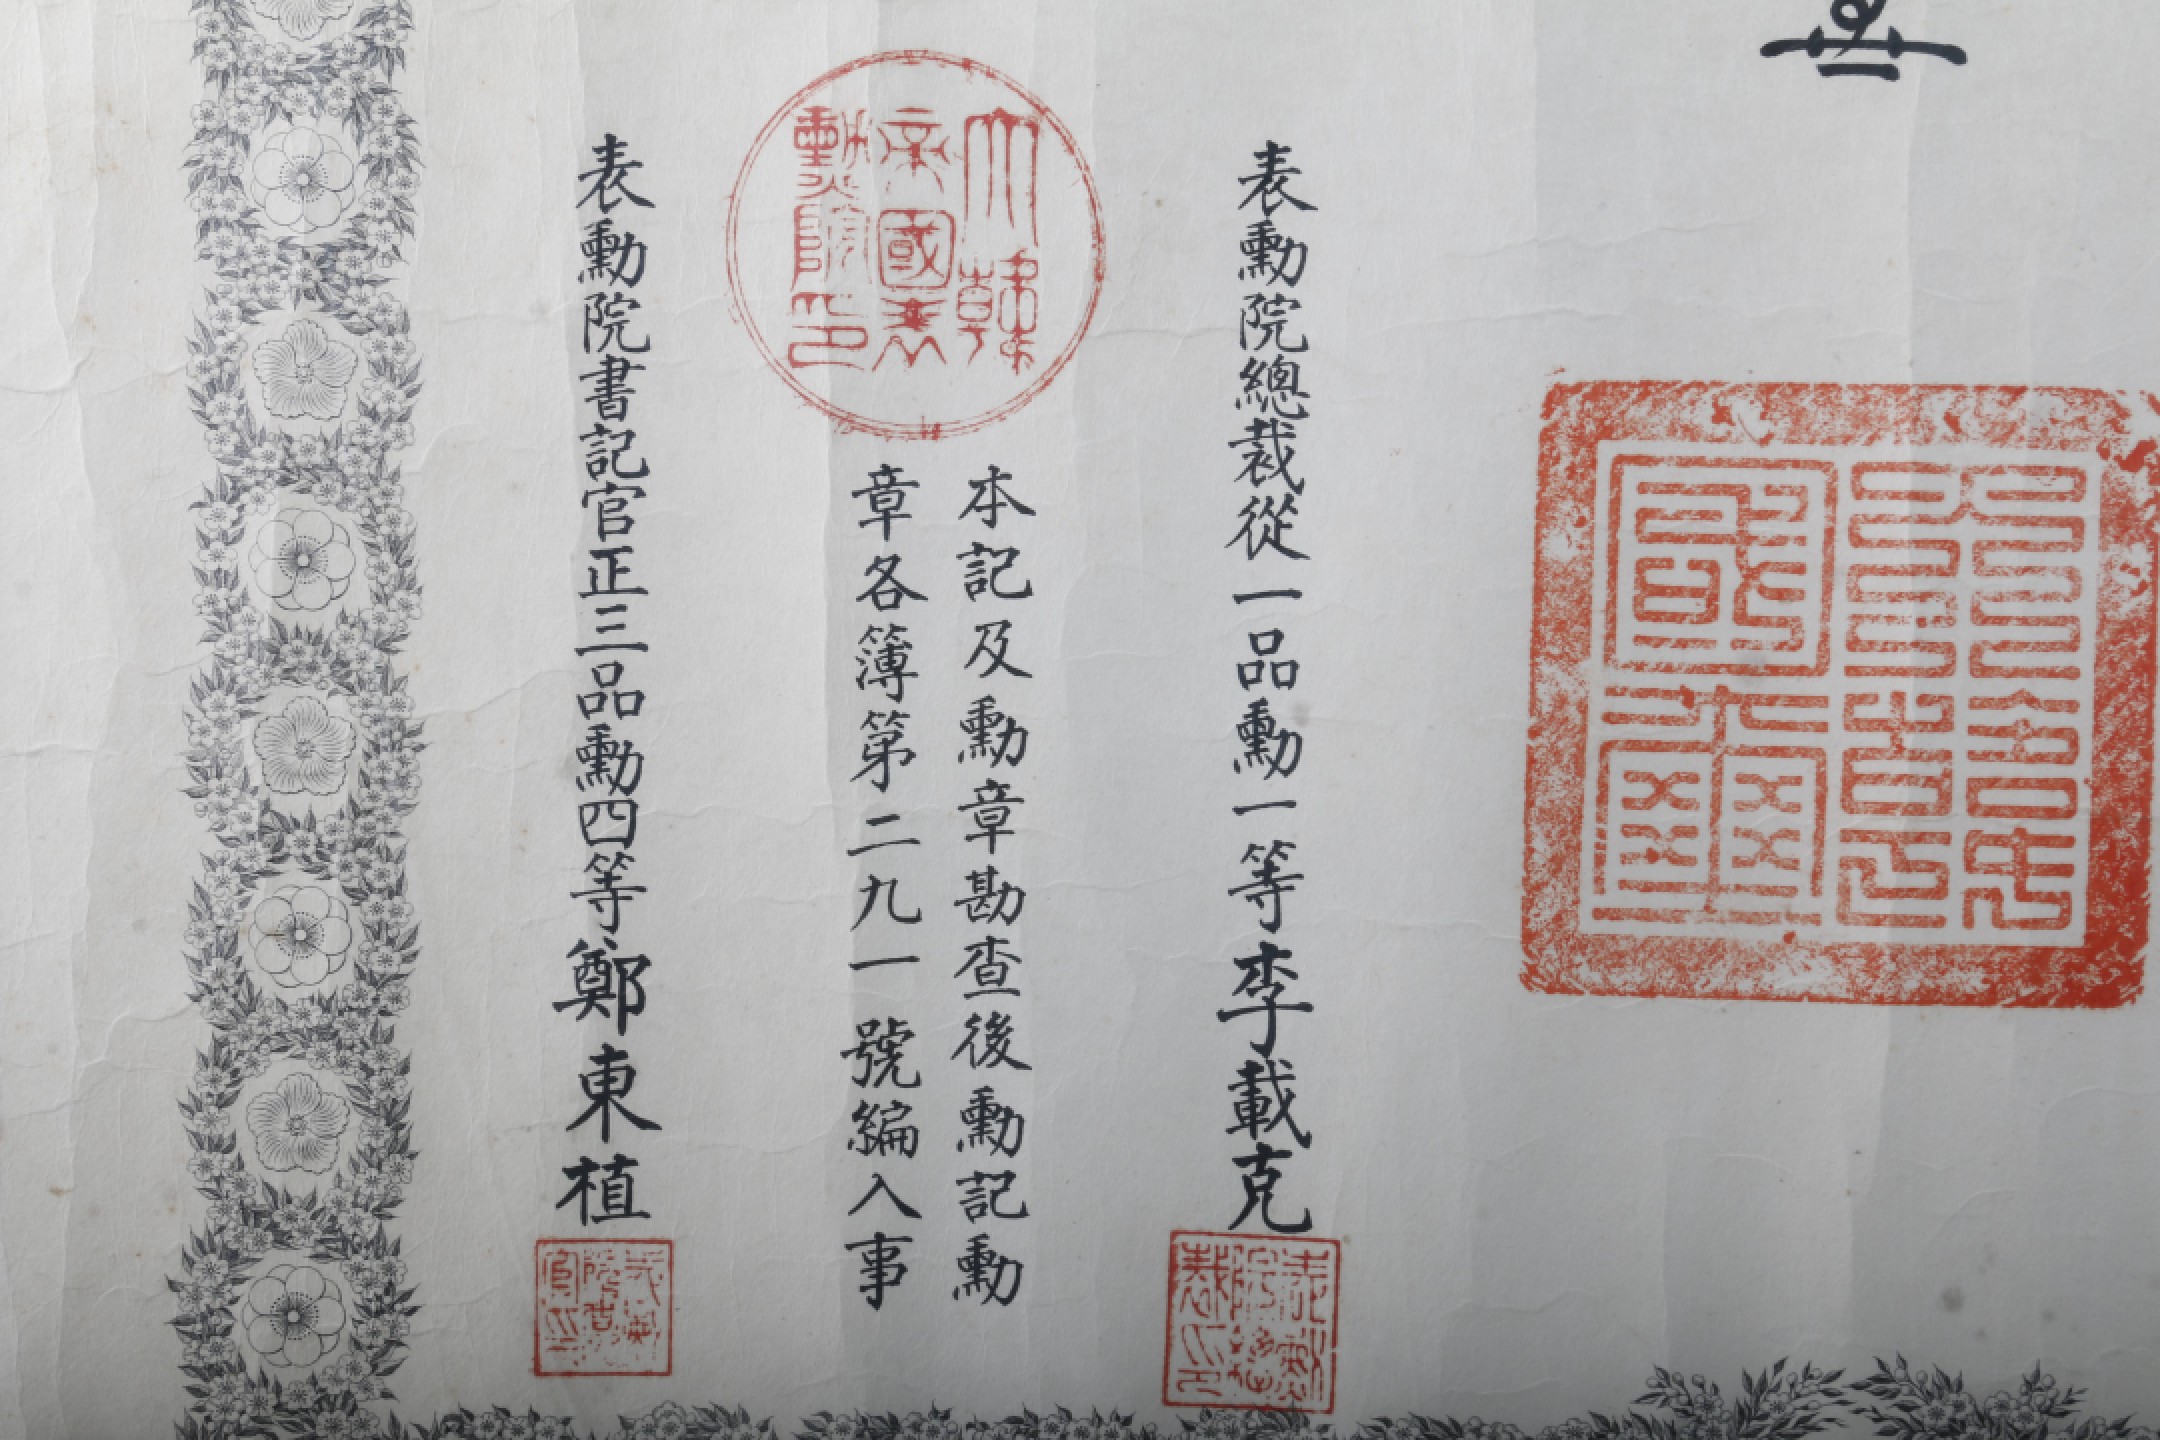 表勳院總裁從一品勳一等李載克
表勳院總裁印
大韓帝國表勳院印
本記及勳章勘查後勳記勳
章各簿第二九一號編入事
表勳院書記官正三品勳四等鄭東植
表勳院書記官印